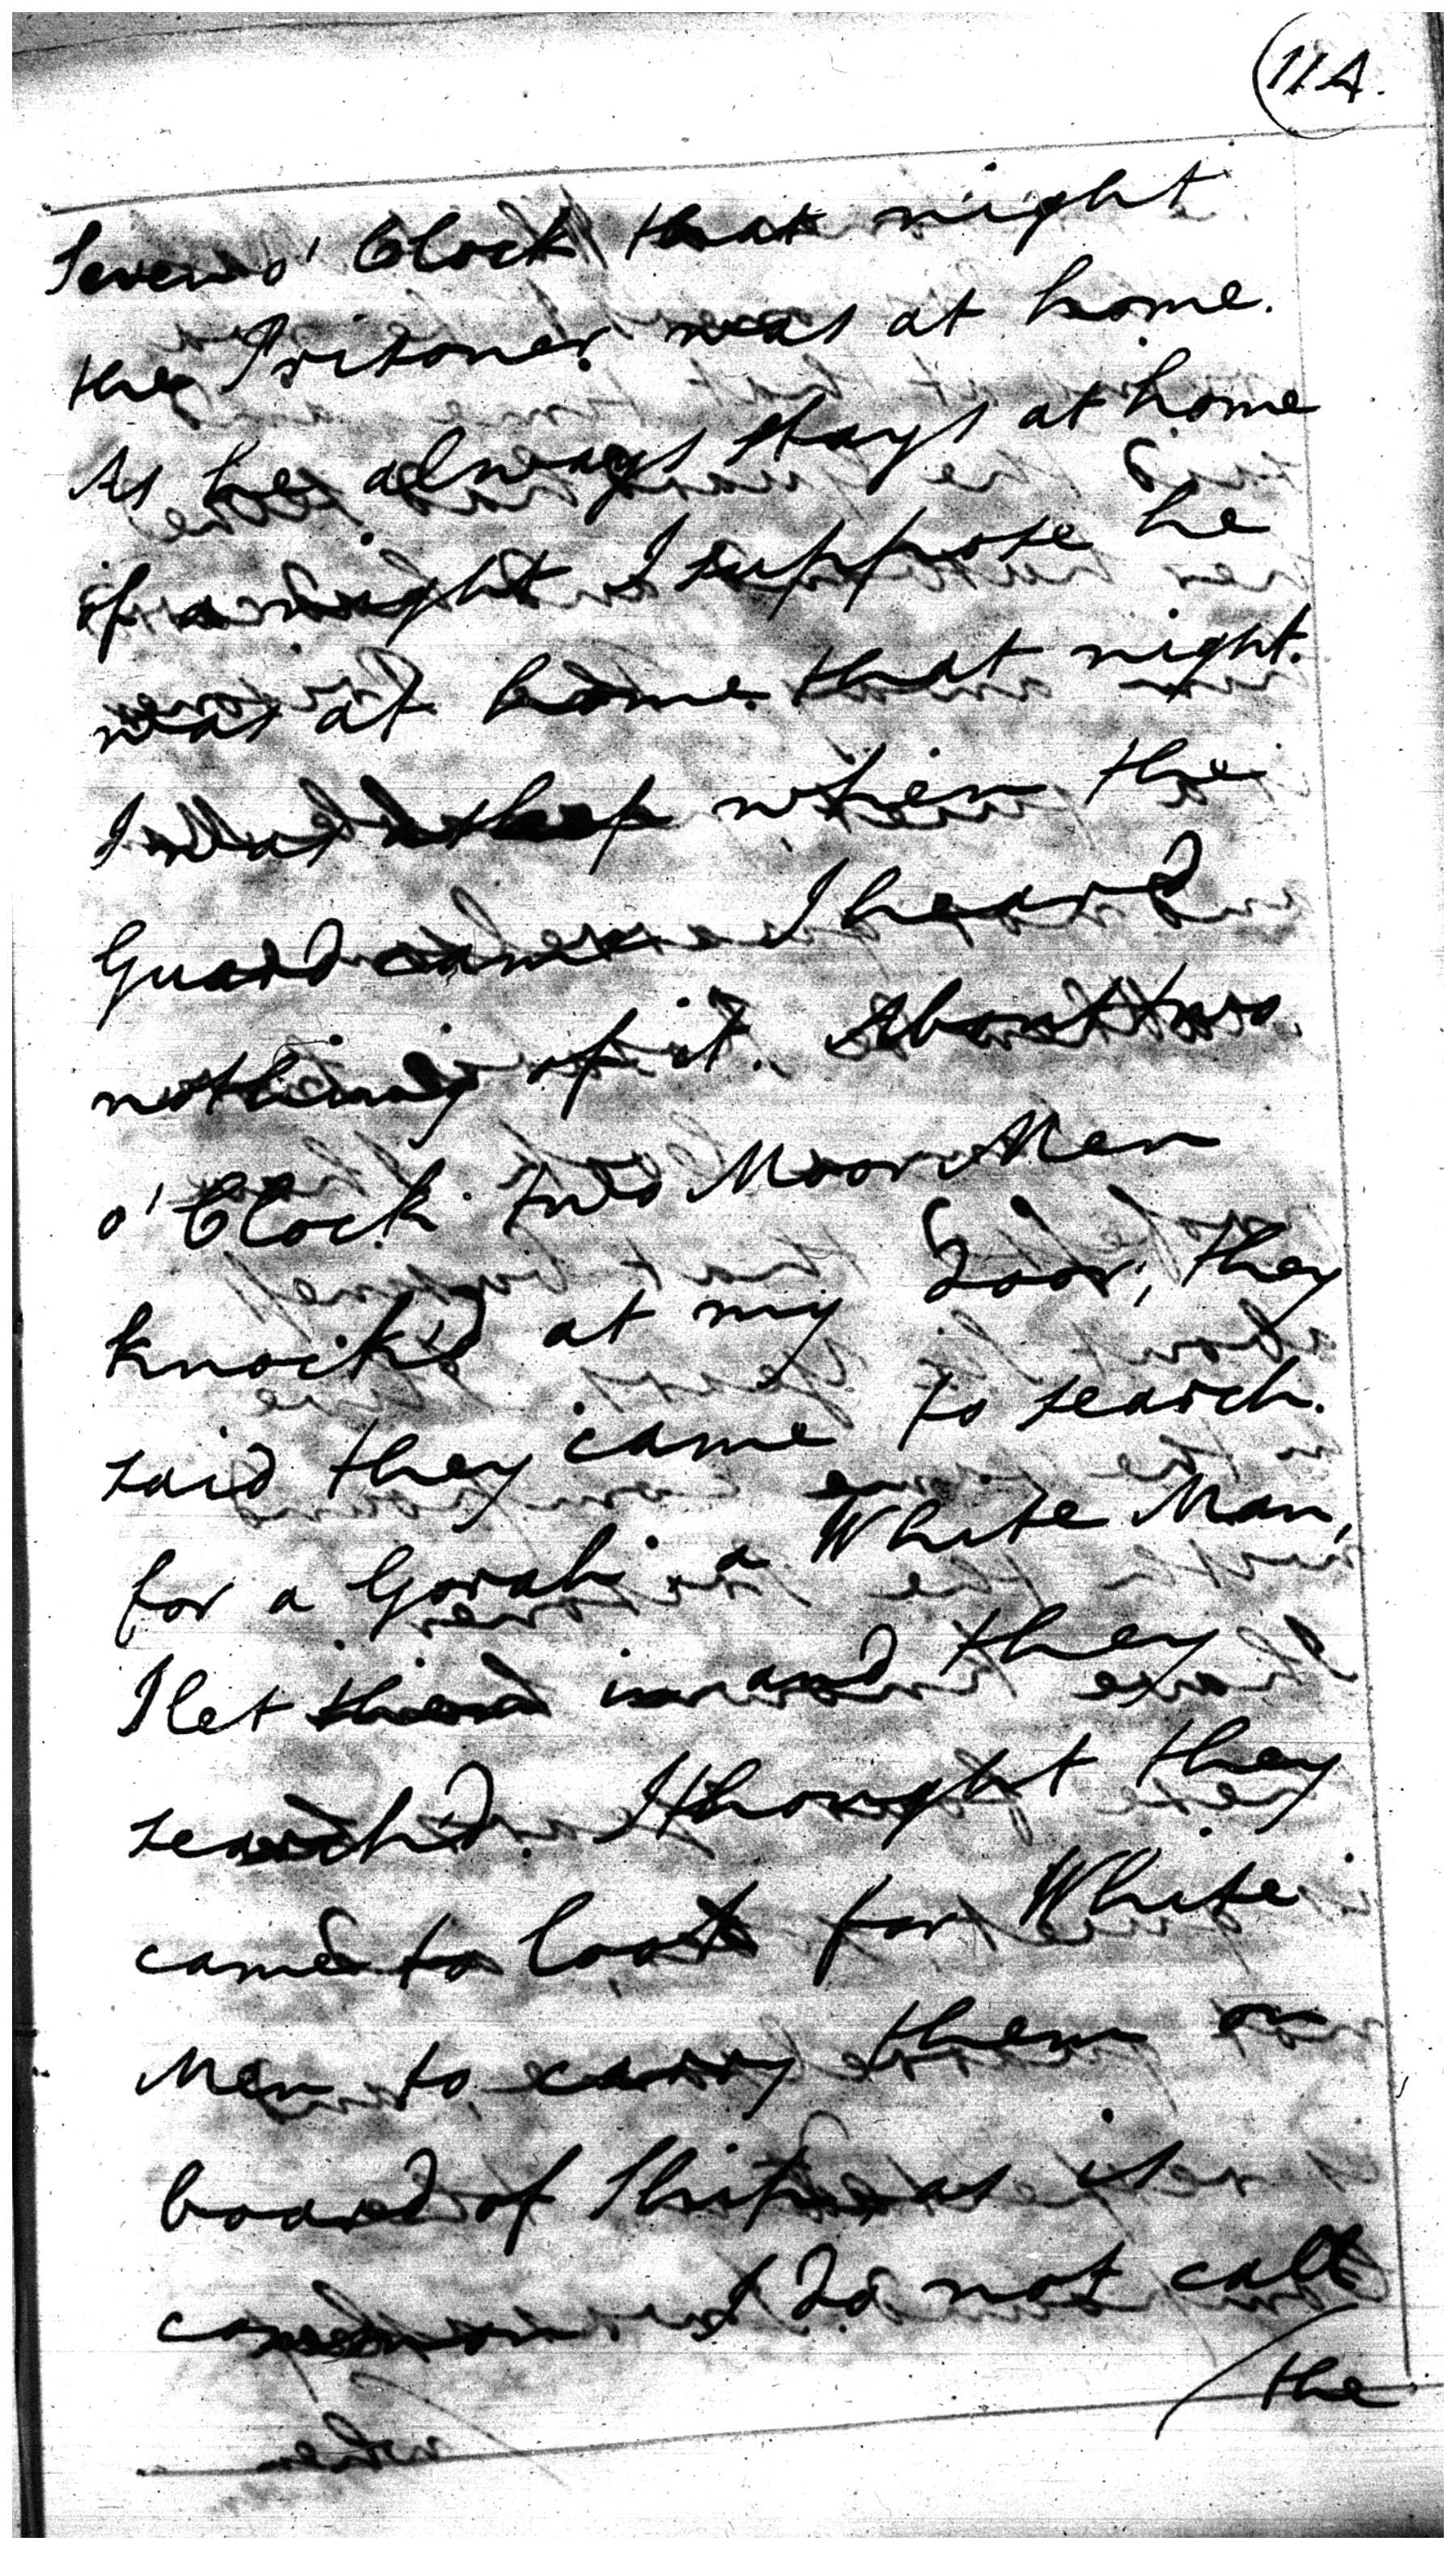 11A.
Seven o' Clock that night
the Prisoner was at home.
As he always stays at home
of a night I suppose he
was at home that night.
I was asleep when the
Guard came I heard
nothing of it. About two
o' Clock two Moor Men
knock'd at my Door, they
said they came to search.
for a Gorah a White Man,
I let them in and they
search'd. I thought they
came to look for White
Men to carry them on
board of Ship as is
common I do not call
/the